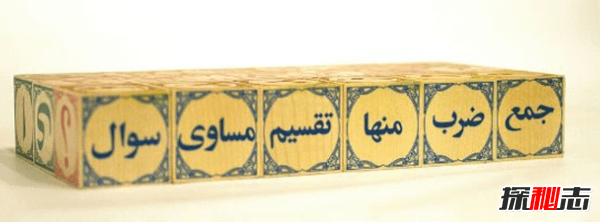 جمع ضرب منها تقسیم مساوی سوال
؟
探秘志